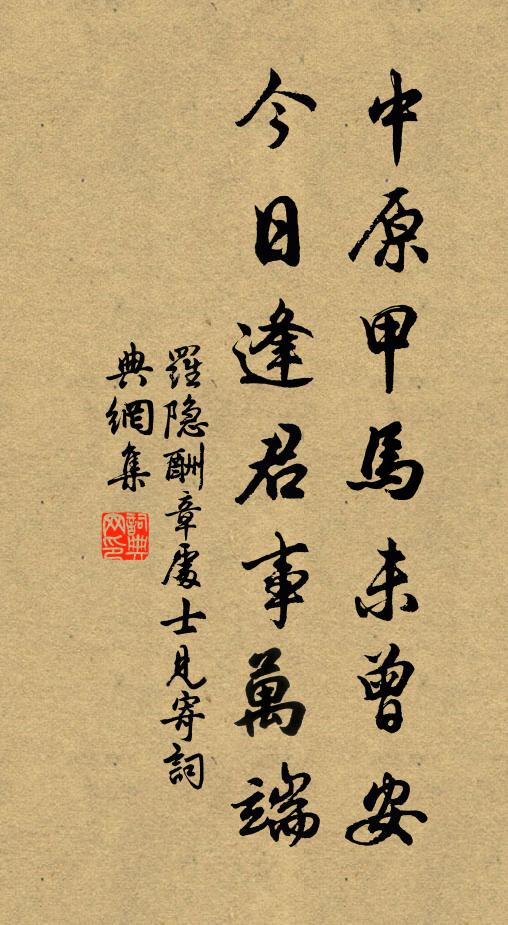 中原甲馬未曾安
今日逢君事萬端
羅隐酬章處士見寄詞
典網集
詞典網印